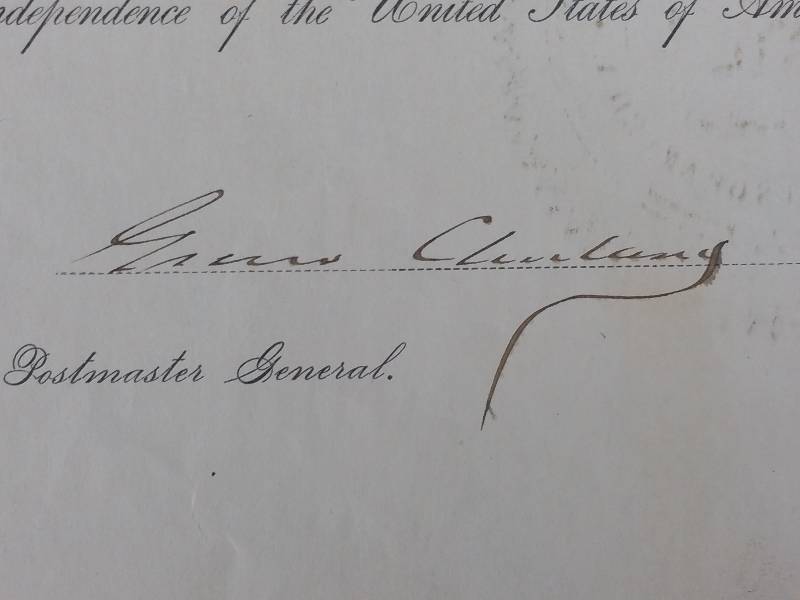 ndependence of the United States of Am
Grover Cleveland
Postmaster General.